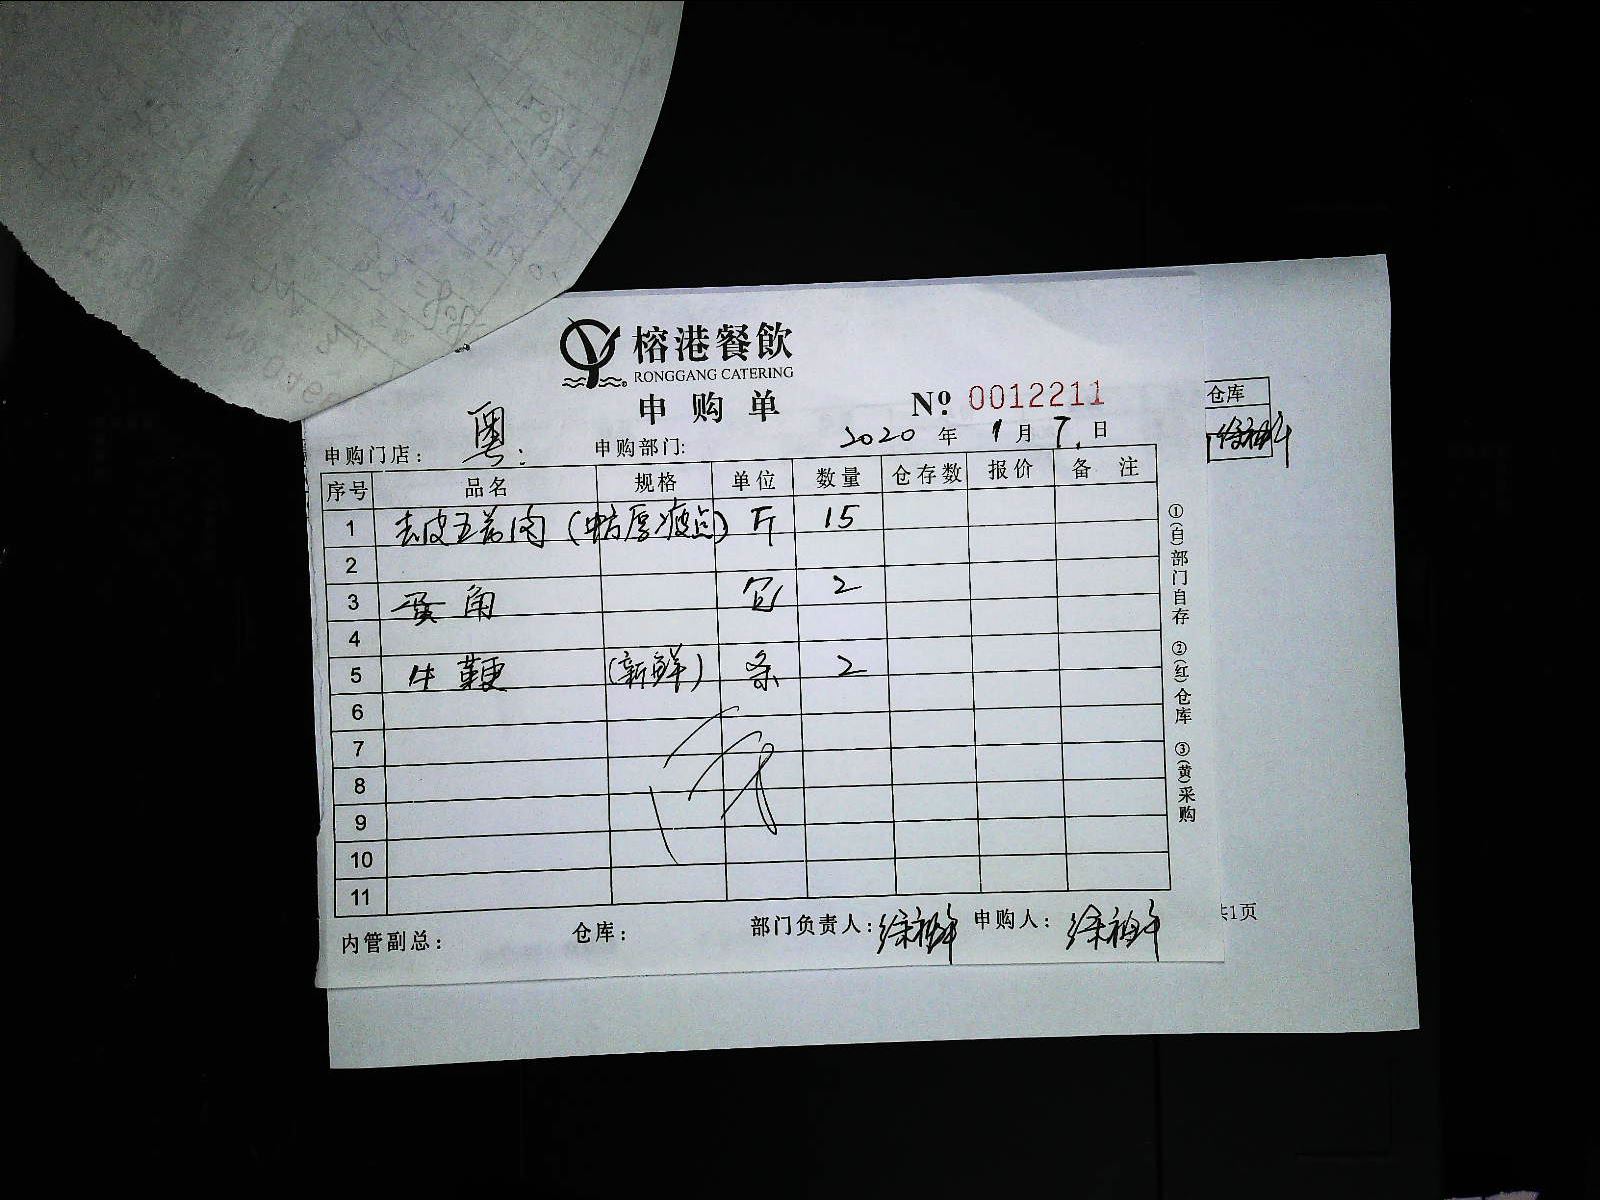 榕港餐飲
RONGGANG CATERING
申购单 Nº 0012211
仓库
申购门店: 粤: 申购部门: 2020 年 1 月 7. 日
序号 品名 规格 单位 数量 仓存数 报价 备注
1 去皮五花肉 斤 15
2
3 蛋角 包 2
4
5 牛鞭 (新鲜) 条 2
6
7
8
9
10
11
①(白)部门自存 ②(红)仓库 ③(黄)采购
内管副总: 仓库: 部门负责人: 申购人:
共1页